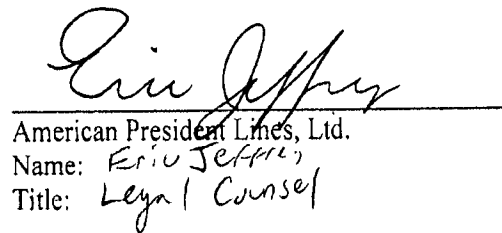 Eric Jeffrey
American President Lines, Ltd.
Name: Eric Jeffrey
Title: Legal Counsel